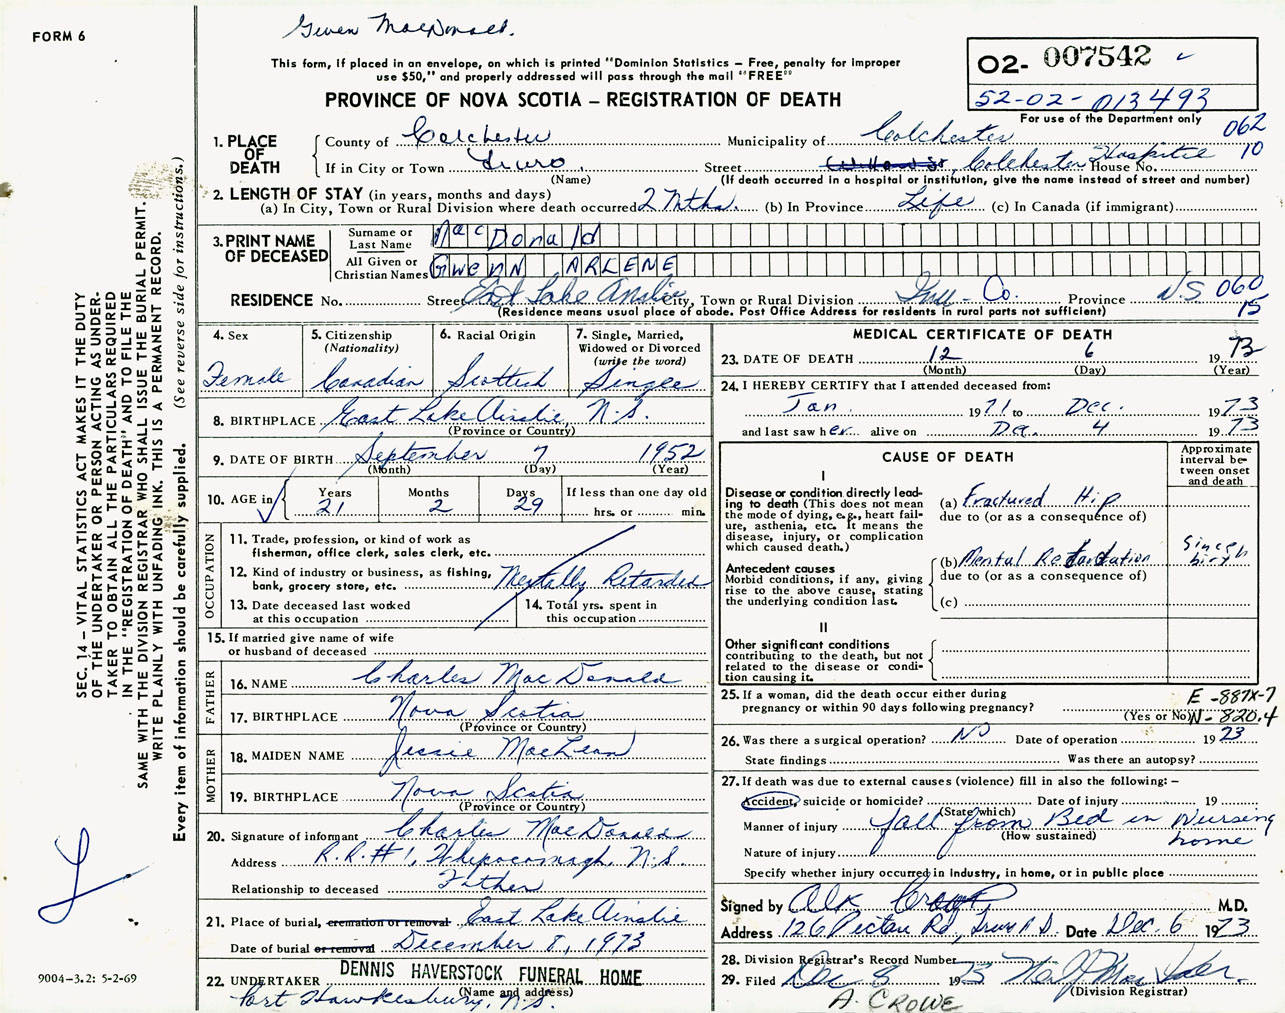 FORM 6
Gwen MacDonald.
This form, if placed in an envelope, on which is printed "Dominion Statistics – Free, penalty for improper
use $50," and properly addressed will pass through the mail "FREE"
PROVINCE OF NOVA SCOTIA – REGISTRATION OF DEATH
02- 007542
52-02-013493
For use of the Department only
062
10
1. PLACE OF DEATH
County of Colchester Municipality of Colchester
If in City or Town Truro Street Colchester Hospital House No.
(Name) (If death occurred in a hospital or institution, give the name instead of street and number)
2. LENGTH OF STAY (in years, months and days)
(a) In City, Town or Rural Division where death occurred 2 Mths. (b) In Province Life (c) In Canada (if immigrant)
3. PRINT NAME OF DECEASED
Surname or Last Name MacDonald
All Given or Christian Names GWENN ARLENE
RESIDENCE No. Street East Lake Ainslie City, Town or Rural Division Inv- Co. Province N.S 060
15
(Residence means usual place of abode. Post Office Address for residents in rural parts not sufficient)
4. Sex
Female
5. Citizenship
(Nationality)
Canadian
6. Racial Origin
Scottish
7. Single, Married,
Widowed or Divorced
(write the word)
Single
8. BIRTHPLACE East Lake Ainslie, N.S.
(Province or Country)
9. DATE OF BIRTH September 7 1952
(Month) (Day) (Year)
10. AGE in
Years 21
Months 2
Days 29
If less than one day old
hrs. or min.
OCCUPATION
11. Trade, profession, or kind of work as
fisherman, office clerk, sales clerk, etc.
12. Kind of industry or business, as fishing,
bank, grocery store, etc. Mentally Retarded
13. Date deceased last worked
at this occupation
14. Total yrs. spent in
this occupation
15. If married give name of wife
or husband of deceased
FATHER
16. NAME Charles MacDonald
17. BIRTHPLACE Nova Scotia
(Province or Country)
MOTHER
18. MAIDEN NAME Jessie MacLean
19. BIRTHPLACE Nova Scotia
(Province or Country)
20. Signature of informant Charles MacDonald
Address R.R.#1, Whycocomagh, N.S.
Relationship to deceased Father
21. Place of burial, cremation or removal East Lake Ainslie
Date of burial or removal December 8, 1973
22. UNDERTAKER DENNIS HAVERSTOCK FUNERAL HOME
(Name and address)
Port Hawkesbury, N.S.
MEDICAL CERTIFICATE OF DEATH
23. DATE OF DEATH 12 6 1973
(Month) (Day) (Year)
24. I HEREBY CERTIFY that I attended deceased from:
Jan. 1971 to Dec. 1973
and last saw her alive on Dec. 4 1973
CAUSE OF DEATH
Approximate
interval be-
tween onset
and death
I
Disease or condition directly lead-
ing to death (This does not mean
the mode of dying, e.g., heart fail-
ure, asthenia, etc. It means the
disease, injury, or complication
which caused death.)
(a) Fractured Hip
due to (or as a consequence of)
Antecedent causes
Morbid conditions, if any, giving
rise to the above cause, stating
the underlying condition last.
(b) Mental Retardation since birth
due to (or as a consequence of)
(c)
II
Other significant conditions
contributing to the death, but not
related to the disease or condi-
tion causing it.
25. If a woman, did the death occur either during
pregnancy or within 90 days following pregnancy?
(Yes or No)
E -887X-7
N- 820.4
26. Was there a surgical operation? NO Date of operation 1973
State findings Was there an autopsy?
27. If death was due to external causes (violence) fill in also the following:–
Accident, suicide or homicide? Date of injury 19
(State which)
Manner of injury fall from Bed in Nursing
home
(How sustained)
Nature of injury
Specify whether injury occurred in industry, in home, or in public place
Signed by M.D.
Address 126 Pictou Rd, Truro N.S. Date Dec. 6 1973
28. Division Registrar's Record Number
29. Filed Dec 8 1973
(Division Registrar)
A. CROWE
SEC. 14 – VITAL STATISTICS ACT MAKES IT THE DUTY
OF THE UNDERTAKER OR PERSON ACTING AS UNDER-
TAKER TO OBTAIN ALL THE PARTICULARS REQUIRED
IN THE "REGISTRATION OF DEATH" AND TO FILE THE
SAME WITH THE DIVISION REGISTRAR WHO SHALL ISSUE THE BURIAL PERMIT.
WRITE PLAINLY WITH UNFADING INK. THIS IS A PERMANENT RECORD.
Every item of information should be carefully supplied. (See reverse side for instructions.)
9004-3.2: 5-2-69